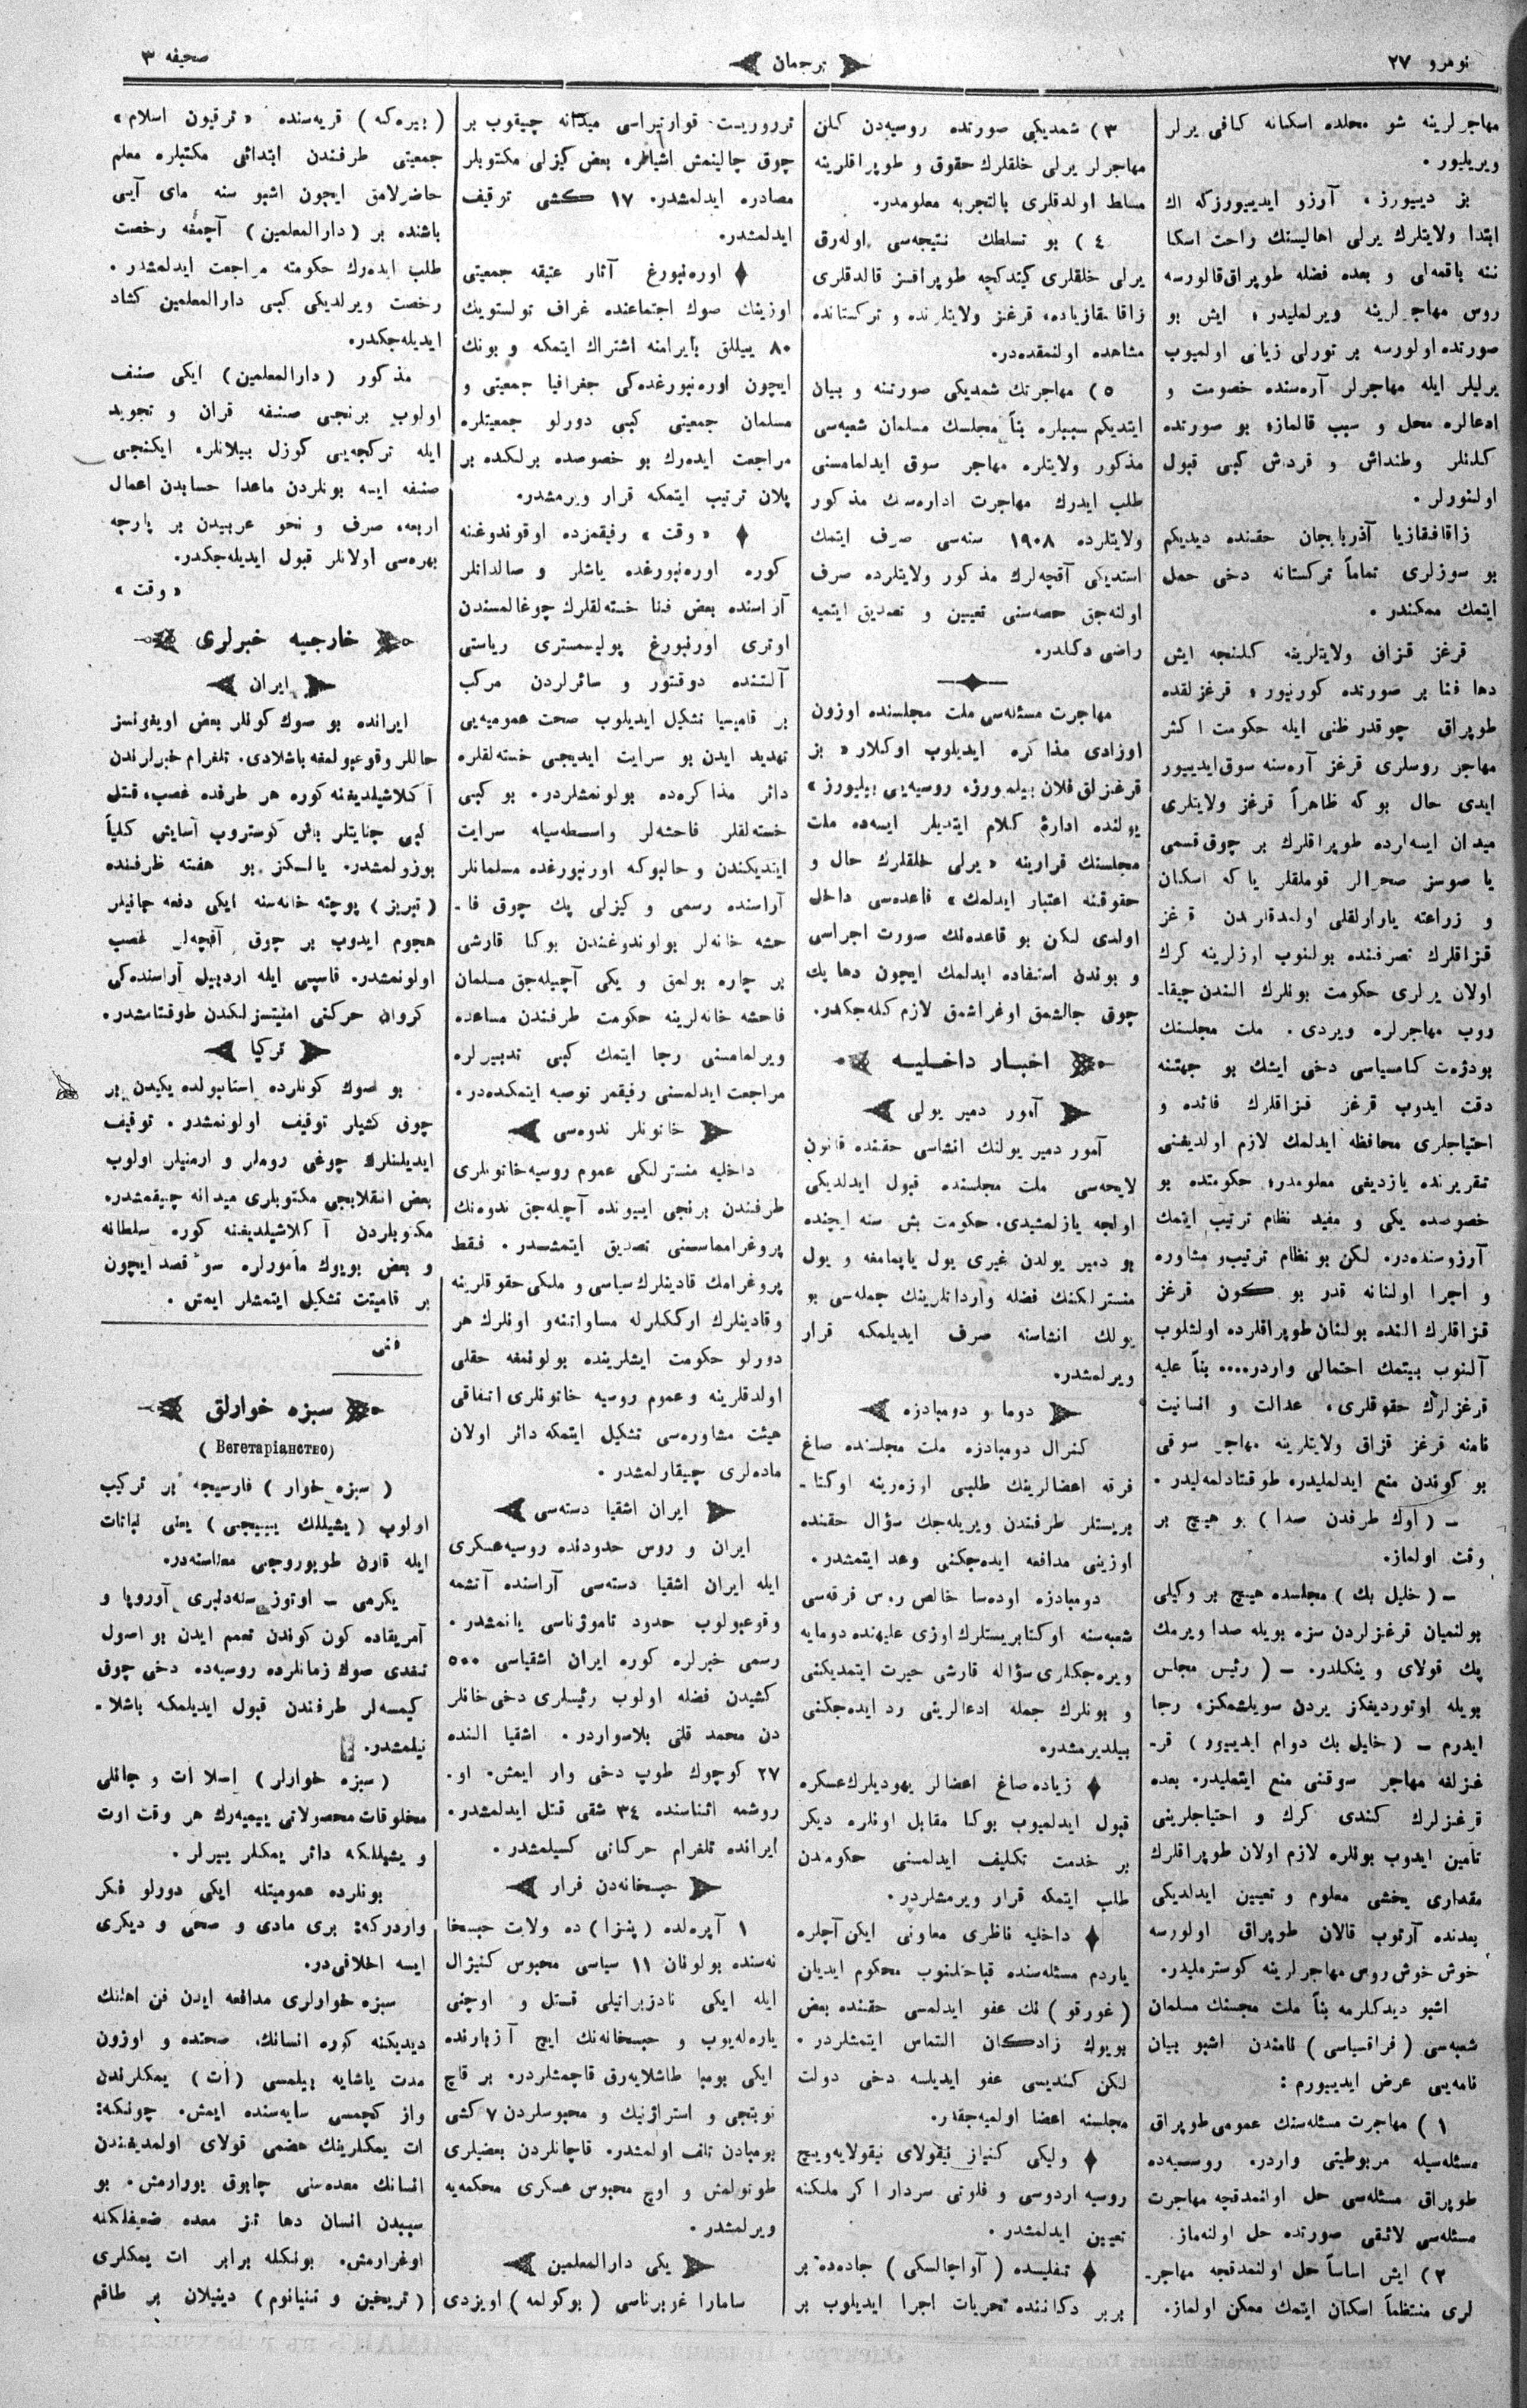 نومرو ٢٧
ترجمان
صحيفه ٣
مهاجرلرينه شو محلده اسكانه كافى يرلر
ويريليور.
بز ديييورز، آرزو ايدييورزكه اك
ابتدا ولايتلرك يرلى اهاليسنك راحت اسكا
ننه باقمه‌لى و بعده فضله طوپراق قالورسه
روس مهاجرلرينه ويرلمليدر؛ ايش بو
صورتده اولورسه بر تورلى زيانى اولميوب
يرليلر ايله مهاجرلر آره‌سنده خصومت و
ادعالره محل و سبب قالماز؛ بو صورتده
كلنلر وطنداش و قردش كبى قبول
اولنورلر.
زاقافقازيا آذربايجان حقنده ديديكم
بو سوزلرى تماماً تركستانه دخى حمل
ايتمك ممكندر.
قرغز قزاق ولايتلرينه كلنجه ايش
دها فنا بر صورتده كورنيور؛ قرغزلقده
طوپراق چوقدر ظنى ايله حكومت اكثر
مهاجر روسلرى قرغز آره‌سنه سوق ايدييور
ايدى حال بوكه ظاهراً قرغز ولايتلرى
ميدان ايسه‌ارده طوپراقلرك بر چوق قسمى
يا صوسز صحرالر قوملقلر ياكه اسكان
و زراعته يارارلقلى اولمدقلرندن قرغز
قزاقلرك تصرفنده بولنوب اوزلرينه كرك
اولان يرلرى حكومت بونلرك الندن چيقا-
روب مهاجرلره ويردى. ملت مجلسنك
بودژه‌ت كاميسياسى دخى ايشك بو جهتنه
دقت ايدوب قرغز قزاقلرك فائده و
احتياجلرى محافظه ايدلمك لازم اولديغنى
تقريرنده يازديغى معلومدر؛ حكومتده بو
خصوصده يكى و مفيد نظام ترتيب ايتمك
آرزوسنده‌در. لكن بو نظام ترتيب، مشاوره
و اجرا اولنانه قدر بو كون قرغز
قزاقلرك النده بولنان طوپراقلرده اولنلوب
آلنوب بيتمك احتمالى واردر.... بناً عليه
قرغزلرك حقوقلرى، عدالت و انسانيت
نامنه قرغز قزاق ولايتلرينه مهاجر سوقى
بو كوندن منع ايدلمليدر، طوقتادلمه‌ليدر.
— (اوك طرفدن صدا) بو هيچ بر
وقت اولماز.
— (خليل بك) مجلسده هيچ بر وكيلى
بولنميان قرغزلردن سزه بويله صدا ويرمك
پك قولاى و ينكلدر. — (رئيس مجلس
بويله اوتورديغكز يردن سويلشمكز، رجا
ايدرم — (خليل بك دوام ايدييور) قر-
غزلغه مهاجر سوقنى منع ايتمليدر. بعده
قرغزلرك كندى كرك و احتياجلرينى
تامين ايدوب بونلره لازم اولان طوپراقلرك
مقدارى يخشى معلوم و تعيين ايدلديكى
بعدنده آرتوب قالان طوپراق اولورسه
خوش خوش روس مهاجرلرينه كوسترمليدر.
اشبو ديدكلرمه بناً ملت مجسنك مسلمان
شعبه‌سى (فراقسياسى) نامندن اشبو بيان
نامه‌يى عرض ايدييورم:
١) مهاجرت مسئله‌سنك عمومى طوپراق
مسئله‌سيله مربوطيتى واردر. روسيه‌ده
طوپراق مسئله‌سى حل اولنمدقچه مهاجرت
مسئله‌سى لائقى صورتده حل اولنه‌ماز.
٢) ايش اساساً حل اولنمدقچه مهاجر-
لرى منتظماً اسكان ايتمك ممكن اولماز.
٣) شمديكى صورتده روسيه‌دن كلن
مهاجرلر يرلى خلقلرك حقوق و طوپراقلرينه
مسلط اولدقلرى بالتجربه معلومدر.
٤) بو تسلطك نتيجه‌سى اوله‌رق
يرلى خلقلرى كيتدكچه طوپراقسز قالدقلرى
زاقافقازياده، قرغز ولايتلرنده و تركستانده
مشاهده اولنمقده‌در.
٥) مهاجرتك شمديكى صورتنه و بيان
ايتديكم سببلره بناً مجلسك مسلمان شعبه‌سى
مذكور ولايتلره مهاجر سوق ايدلمامسنى
طلب ايدرك مهاجرت اداره‌سنك مذكور
ولايتلرده ١٩٠٨ سنه‌سى صرف ايتمك
استديكى آقچه‌لرك مذكور ولايتلرده صرف
اولنه‌جق حصه‌سنى تعيين و تصديق ايتميه
راضى دكلدر.
مهاجرت مسئله‌سى ملت مجلسنده اوزون
اوزادى مذاكره ايديلوب اوكلار «بز
قرغزلق فلان بيلميورز، روسيه‌يى بيليورز»
يولنده ادارهٔ كلام ايتديلر ايسه‌ده ملت
مجلسنك قرارينه «يرلى خلقلرك حال و
حقوقنه اعتبار ايدلمك» قاعده‌سى داخل
اولدى لكن بو قاعده‌نك صورت اجراسى
و بوندن استفاده ايدلمك ايچون دها پك
چوق چالشمق اوغراشمق لازم كله‌جكدر.
اخبار داخليه
آمور دمير يولى
آمور دمير يولنك انشاسى حقنده قانون
لايحه‌سى ملت مجلسنده قبول ايدلديكى
اولجه يازلمشيدى. حكومت بش سنه ايچنده
بو دمير يولدن غيرى يول ياپمامغه و يول
منسترلكنك فضله وارداتلرينك جمله‌سى بو
يولك انشاسنه صرف ايديلمكه قرار
ويرلمشدر.
دوما و دومبادزه
كنرال دومبادزه ملت مجلسنده صاغ
فرقه اعضالرينك طلبى اوزه‌رينه اوكتا-
بريستلر طرفندن ويريله‌جك سؤال حقنده
اوزينى مدافعه ايده‌جكنى وعد ايتمشدر.
دومبادزه اوده‌سا خالص روس فرقه‌سى
شعبه‌سنه اوكتابريستلرك اوزى عليهنده دومايه
ويره‌جكلرى سؤاله قارشى حيرت ايتمديكنى
و بونلرك جمله ادعالرينى رد ايده‌جكنى
بيلديرمشدر.
♦ زياده صاغ اعضالر يهوديلرك عسكره
قبول ايدلميوب بوكا مقابل اونلره ديكر
بر خدمت تكليف ايدلمسنى حكومدن
طلب ايتمكه قرار ويرمشلردر.
♦ داخليه ناظرى معاونى ايكن آچلره
ياردم مسئله‌سنده قباحتلنوب محكوم ايديلن
(غورقو) نك عفو ايدلمسى حقنده بعض
بويوك زادكان التماس ايتمشلردر.
لكن كنديسى عفو ايديلسه دخى دولت
مجلسنه اعضا اولميه‌جقدر.
♦ وليكى كنياز نيقولاى نيقولايه‌ويچ
روسيه اردوسى و فلوتى سردار اكرملكنه
تعيين ايدلمشدر.
♦ تفليسده (آواچالسكى) جاده‌ده بر
بربر دكاننده تحريات اجرا ايديلوب بر
ترروريست قوارتيراسى ميدانه چيقوب بر
چوق چالينمش اشيالره بعض كيزلى مكتوبلر
مصادره ايدلمشدر. ١٧ كشى توقيف
ايدلمشدر.
♦ اوره‌نبورغ آثار عتيقه جمعيتى
اوزينك صوك اجتماعنده غراف تولستويك
٨٠ ييللق بايرامنه اشتراك ايتمكه و بونك
ايچون اوره‌نبورغده‌كى جغرافيا جمعيتى و
مسلمان جمعيتى كبى دورلو جمعيتلره
مراجعت ايده‌رك بو خصوصده برلكده بر
پلان ترتيب ايتمكه قرار ويرمشدر.
♦ «وقت» رفيقمزده اوقوندوغنه
كوره اوره‌نبورغده ياشلر و صالدانلر
آراسنده بعض فنا خسته‌لقلرك چوغالمسندن
اوترى اورنبورغ پوليسمسترى رياستى
آلتنده دوقتور و سائرلردن مركب
بر قاميسيا تشكيل ايديلوب صحت عموميه‌يى
تهديد ايدن بو سرايت ايديجى خسته‌لقلره
دائر مذاكره‌ده بولونمشلردر. بو كبى
خسته‌لقلر فاحشه‌لر واسطه‌سيله سرايت
ايتديكندن و حالبوكه اورنبورغده مسلمانلر
آراسنده رسمى و كيزلى پك چوق فا-
حشه خانه‌لر بولوندوغندن بوكا قارشى
بر چاره بولمق و يكى آچيله‌جق مسلمان
فاحشه خانه‌لرينه حكومت طرفندن مساعده
ويرلمامسنى رجا ايتمك كبى تدبيرلره
مراجعت ايدلمسنى رفيقمز توصيه ايتمكده‌در.
خانونلر ندوه‌سى
داخليه منسترلكى عموم روسيه خانونلرى
طرفندن برنجى ايوننده آچيله‌جق ندوه‌نك
پروغرامماسنى تصديق ايتمشدر. فقط
پروغرامك قادينلرك سياسى و ملكى حقوقلرينه
و قادينلرك اركككلرله مساواتنه و اونلرك هر
دورلو حكومت ايشلرينده بولونمغه حقلى
اولدقلرينه و عموم روسيه خانونلرى اتفاقى
هيئت مشاوره‌سى تشكيل ايتمكه دائر اولان
ماده‌لرى چيقارلمشدر.
ايران اشقيا دسته‌سى
ايران و روس حدودنده روسيه عسكرى
ايله ايران اشقيا دسته‌سى آراسنده آتشمه
وقوعبولوب حدود تاموژناسى يانمشدر.
رسمى خبرلره كوره ايران اشقياسى ٥٠٠
كشيدن فضله اولوب رئيسلرى دخى خانلر
دن محمد قلى بلاسواردر. اشقيا النده
٢٧ كوچوك طوپ دخى وار ايمش. او-
روشمه اثناسنده ٣٤ شقى قتل ايدلمشدر.
ايرانده تلغرام حركاتى كسيلمشدر.
حبسخانه‌دن فرار
١ آپره‌لده (پنزا) ده ولايت حبسخا
نه‌سنده بولونان ١١ سياسى محبوس كنيزال
ايله ايكى نادزيراتيلى قتل و اوچنى
ياره‌له‌يوب و حبسخانه‌نك ايچ آزبارنده
ايكى بومبا طاشلايه‌رق قاچمشلردر. بر قاچ
نوبتجى و استراژنيك و محبوسلردن ٧ كشى
بومبادن تلف اولمشدر. قاچانلردن بعضيلرى
طوتولمش و اوچ محبوس عسكرى محكمه‌يه
ويرلمشدر.
يكى دارالمعلمين
سامارا غوبرناسى (بوكولمه) اويزدى
(بيره‌كه) قريه‌سنده «ترقيون اسلام»
جمعيتى طرفندن ابتدائى مكتبلره معلم
حاضرلامق ايچون اشبو سنه ماى آيى
باشنده بر (دارالمعلمين) آچمغه رخصت
طلب ايده‌رك حكومته مراجعت ايدلمشدر.
رخصت ويرلديكى كبى دارالمعلمين كشاد
ايديله‌جكدر.
مذكور (دارالمعلمين) ايكى صنف
اولوب برنجى صنفه قران و تجويد
ايله تركجه‌يى كوزل بيلانلره، ايكنجى
صنفه ايسه بونلردن ماعدا حسابدن اعمال
اربعه، صرف و نحو عربيدن بر پارچه
بهره‌سى اولانلر قبول ايديله‌جكدر.
«وقت»
خارجيه خبرلرى
ايران
ايرانده بو صوك كونلر بعض اويغونسز
حاللر وقوعبولمغه باشلادى. تلغرام خبرلرندن
آكلاشيلديغنه كوره هر طرفده غصب، قتل
كبى جنايتلر باش كوستروب آسايش كلياً
بوزولمشدر. يالكز بو هفته ظرفنده
(تبريز) پوچته خانه‌سنه ايكى دفعه جانيلر
هجوم ايدوب بر چوق آقچه‌لر غصب
اولونمشدر. قاسپى ايله اردبيل آراسنده‌كى
كروان حركتى امنيتسزلكدن طوقتامشدر.
تركيا
بو صوك كونلرده استانبولده يكيدن بر
چوق كشيلر توقيف اولونمشدر. توقيف
ايديلنلرك چوغى روملر و ارمنيلر اولوب
بعض انقلابجى مكتوبلرى ميدانه چيقمشدر.
مكتوبلردن آكلاشيلديغنه كوره سلطانه
و بعض بويوك مأمورلره سوء قصد ايچون
بر قاميتت تشكيل ايتمشلر ايمش.
فنى
سبزه خوارلق
(Вегетаріанство)
(سبزه خوار) فارسيجه بر تركيب
اولوب (يشيللك يييجى) يعنى نباتات
ايله قارن طويوروجى معناسنه‌در.
يكرمى — اوتوز سنه‌دنبرى آوروپا و
آمريقاده كون كوندن تعمم ايدن بو اصول
تغدى صوك زمانلرده روسيه‌ده دخى چوق
كيمسه‌لر طرفندن قبول ايديلمكه باشلا-
نيلمشدر.
(سبزه خوارلر) اصلا ات و جانلى
مخلوقات محصولاتى ييميه‌رك هر وقت اوت
و يشيللكه دائر يمكلر ييرلر.
بونلرده عموميتله ايكى دورلو فكر
واردركه: برى مادى و صحى و ديكرى
ايسه اخلاقى در.
سبزه خوارلرى مدافعه ايدن فن اهلنك
ديديكنه كوره انسانك، صحتده و اوزون
مدت ياشايه بيلمسى (ات) يمكلرندن
واز كچمسى سايه‌سنده ايمش. چونكه:
ات يمكلرينك هضمى قولاى اولمديغندن
انسانك معده‌سنى چابوق يورارمش. بو
سببدن انسان دها تيز معده ضعيفلكنه
اوغرارمش. بونكله برابر ات يمكلرى
(تريخين و تنيانوم) دينيلان بر طاقم